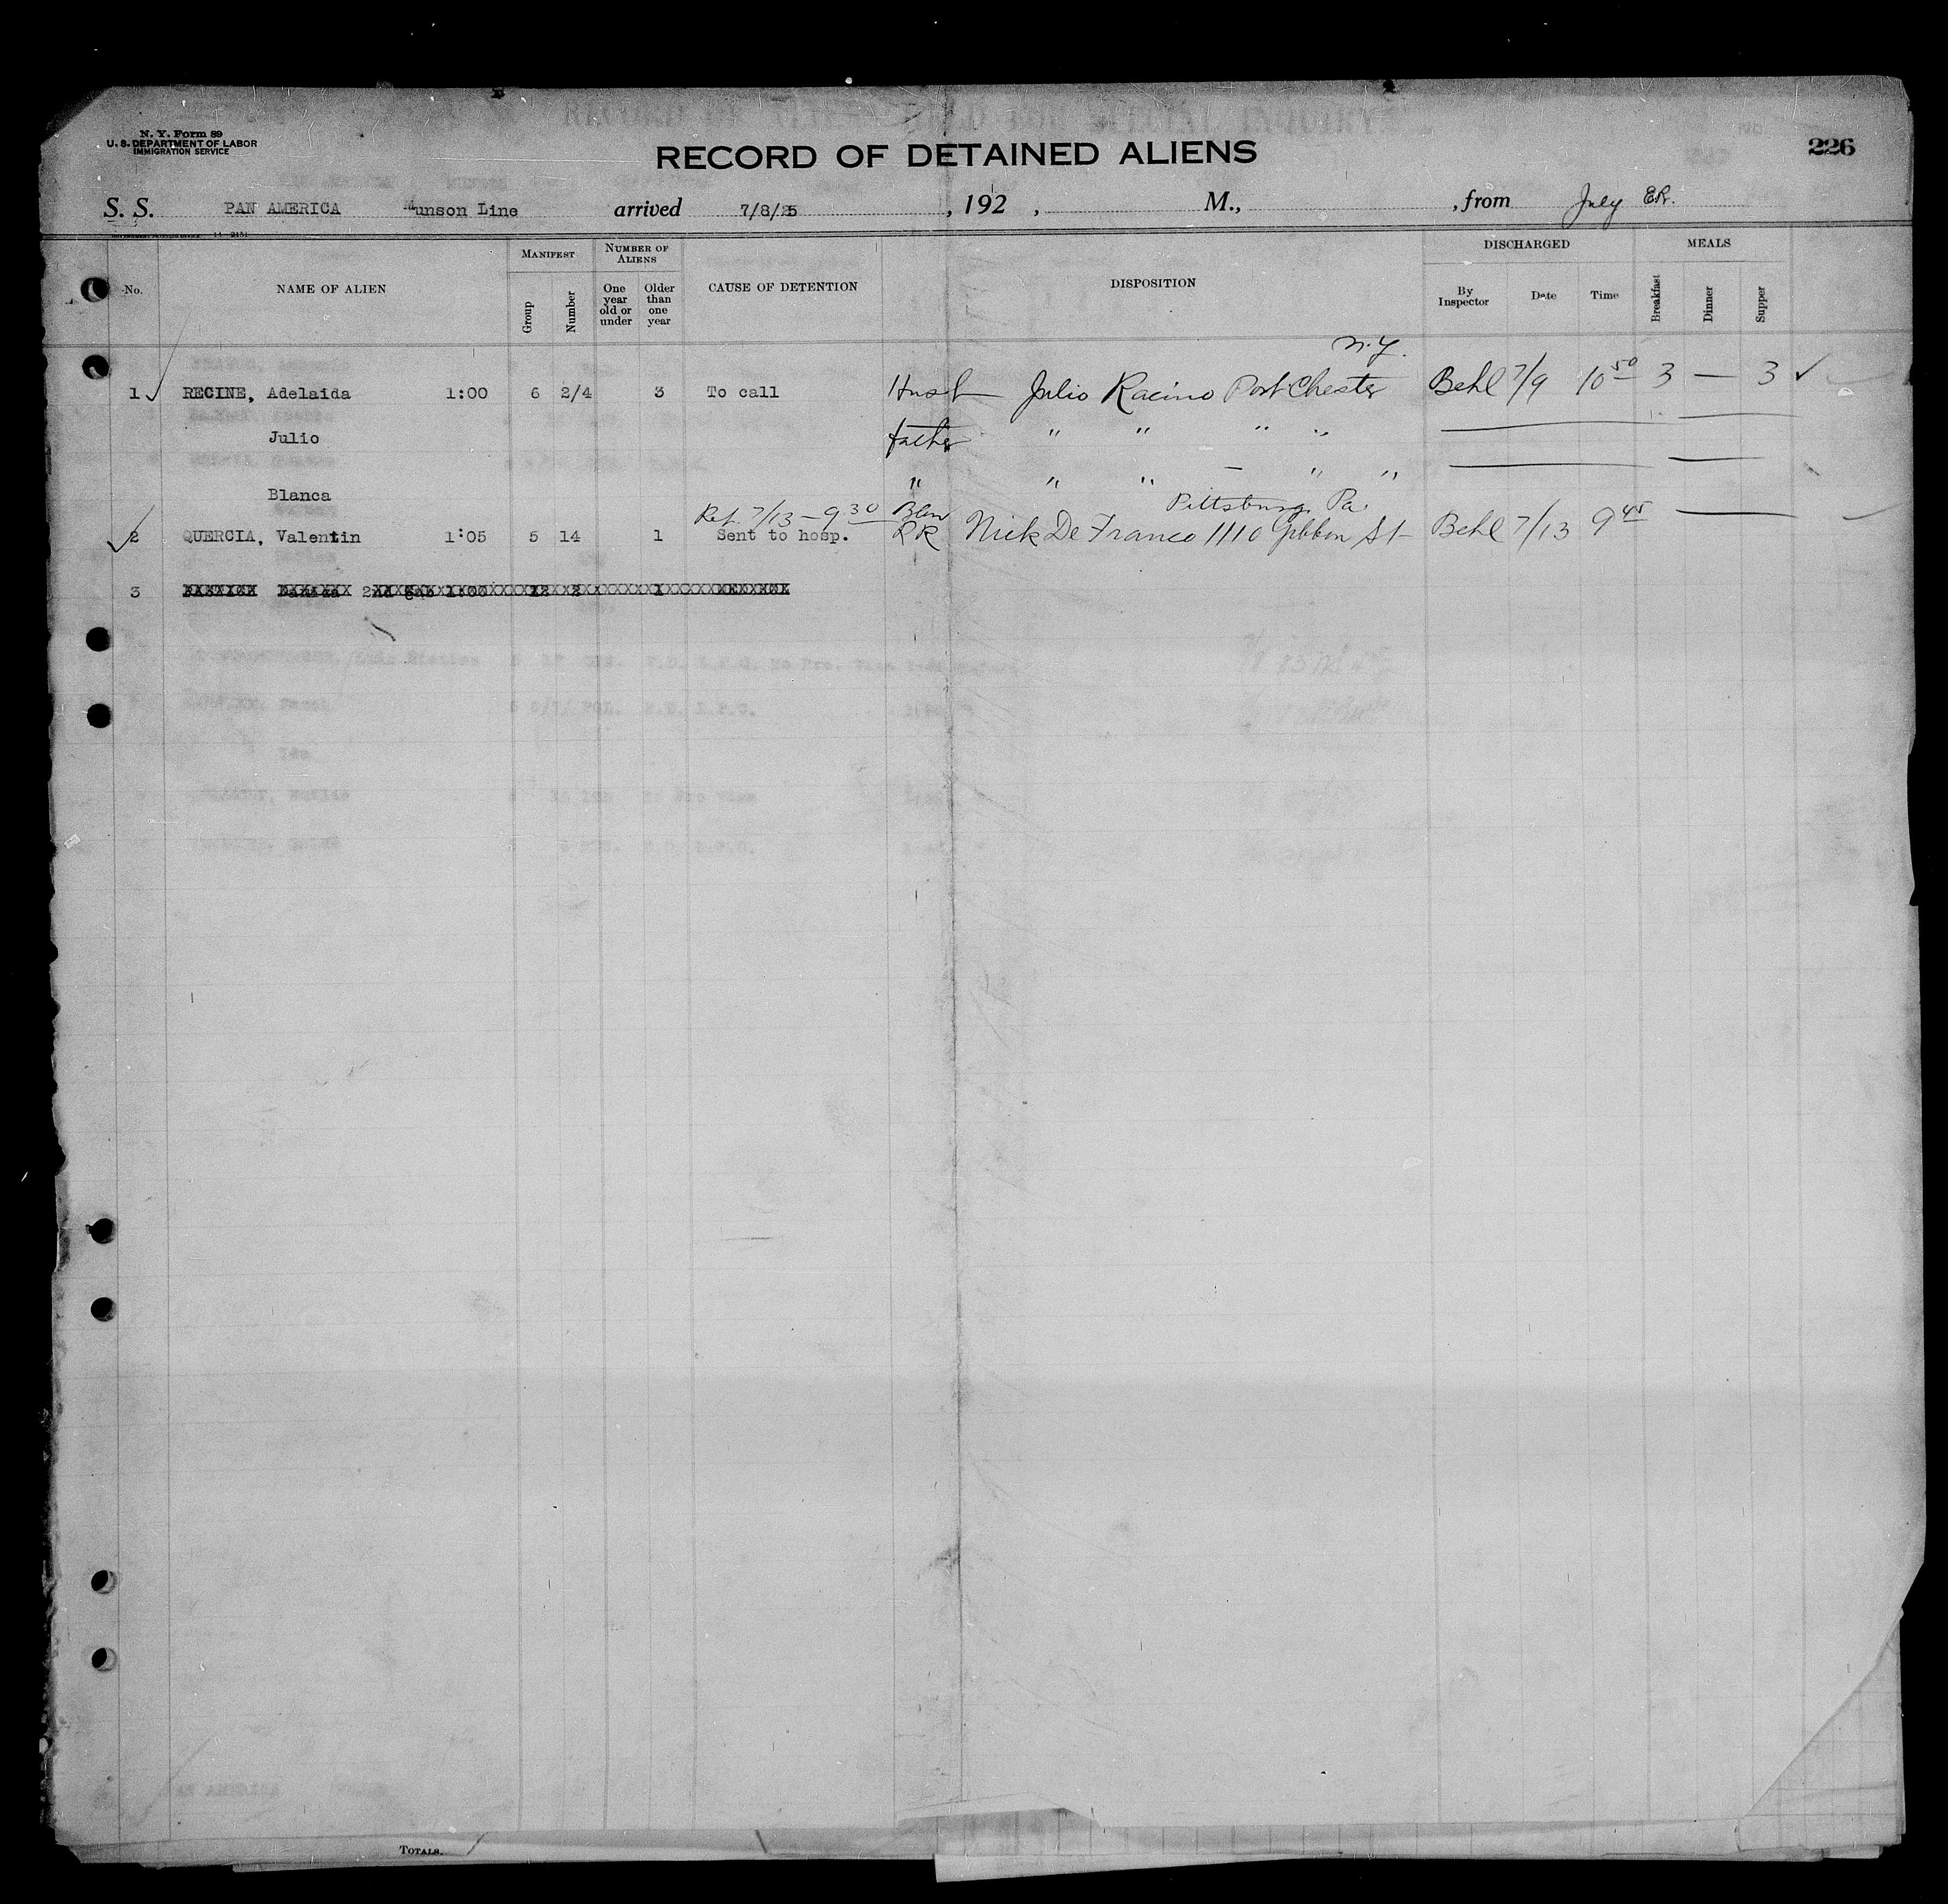 N. Y. Form 89
U. S. DEPARTMENT OF LABOR
IMMIGRATION SERVICE
RECORD OF DETAINED ALIENS
226
S. S. PAN AMERICA Munson Line arrived 7/8/25, 192 , M., , from July ER.
No. NAME OF ALIEN MANIFEST Group Number NUMBER OF ALIENS One year old or under Older than one year CAUSE OF DETENTION DISPOSITION DISCHARGED By Inspector Date Time MEALS Breakfast Dinner Supper
N.Y.
1 RECINE, Adelaida 1:00 6 2/4 3 To call Husb Julio Racino Port Chester Behl 7/9 10 50 3 — 3 ✓
Julio father " " " "
Blanca " " " — " "
Ret. 7/13 - 9 30 Pittsburg, Pa.
2 QUERCIA, Valentin 1:05 5 14 1 Sent to hosp. RR Nick De Franco 1110 Gibbon St Behl 7/13 9 45
3
TOTALS.